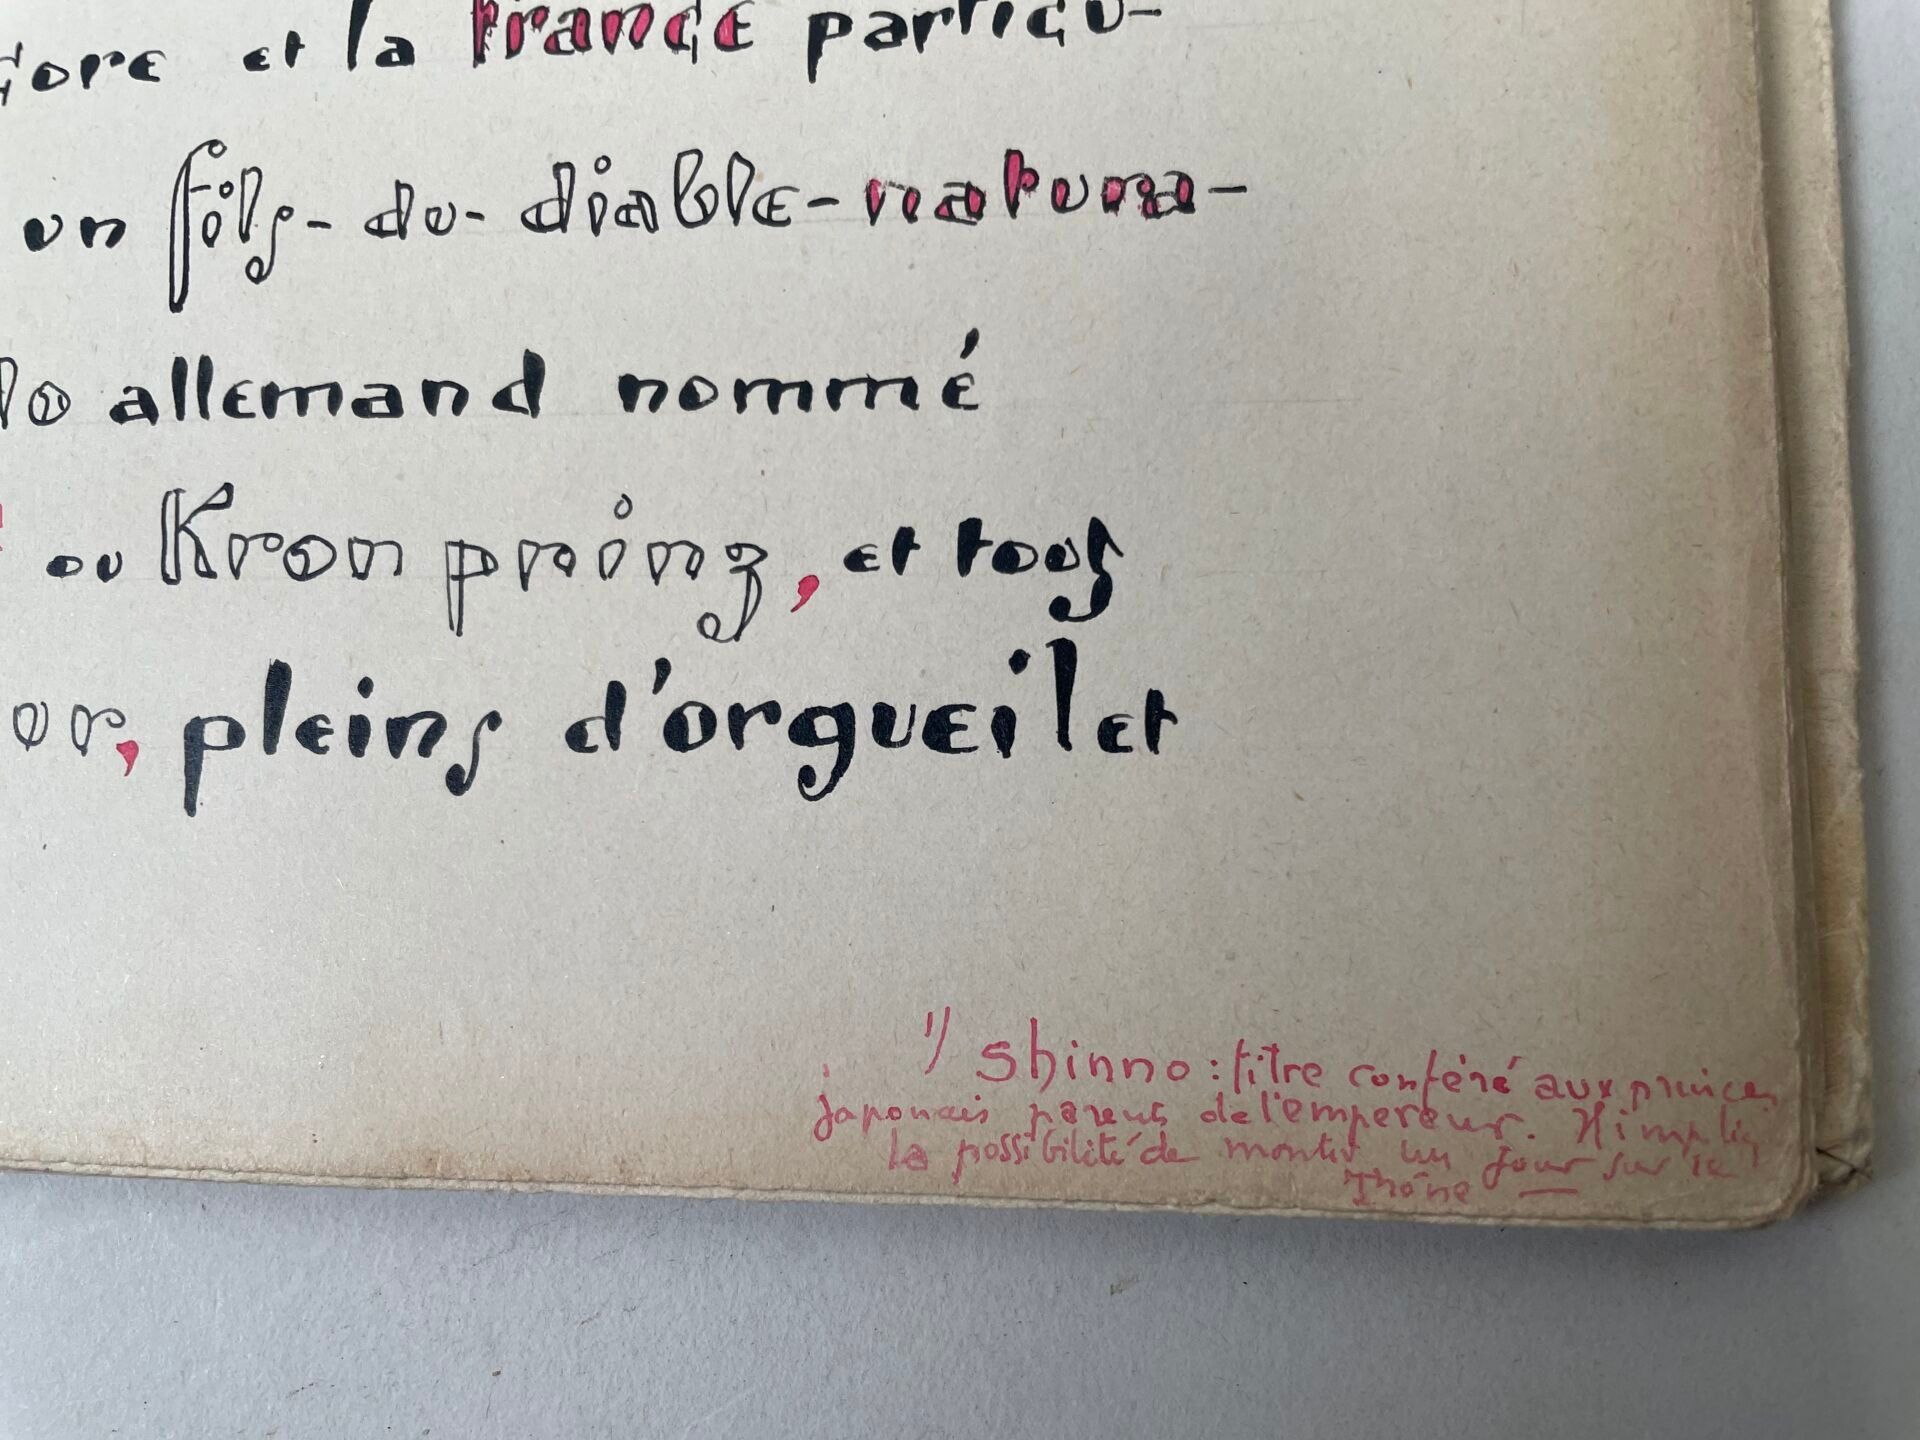 core et la France particu-
un fils-du-diable-natura-
lo allemand nommé
ou Kronprinz, et tous
or, pleins d'orgueil et
1/ Shinno : titre conféré aux princes
japonais parents de l'empereur. Il implique
la possibilité de monter un jour sur le
Thône —